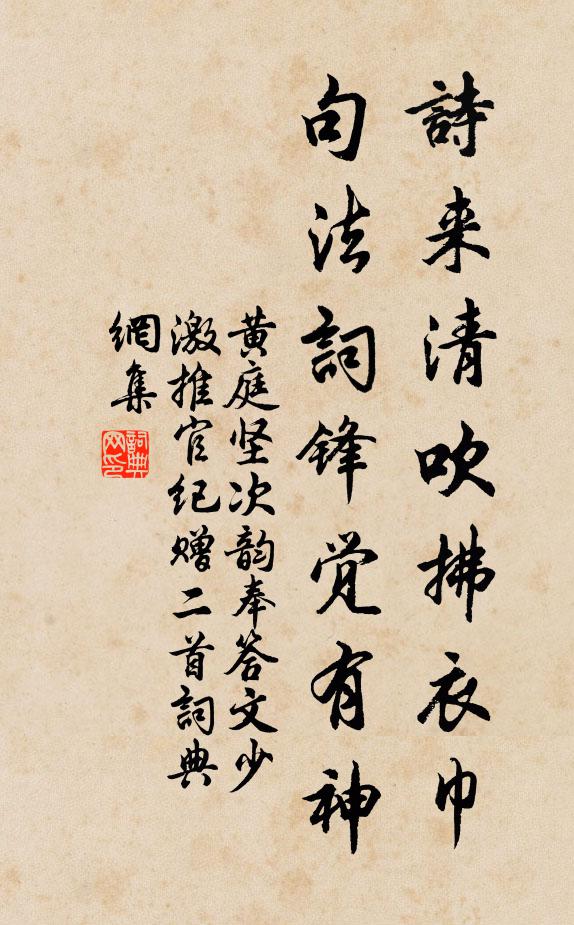 詩来清吹拂衣巾
句法詞锋觉有神
黄庭坚次韵奉答文少
激推官纪赠二首詞典
網集
詞典
网印